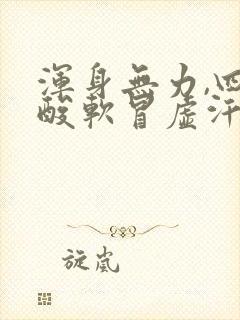 渾身無力,四
酸軟冒虛汗
旋嵐